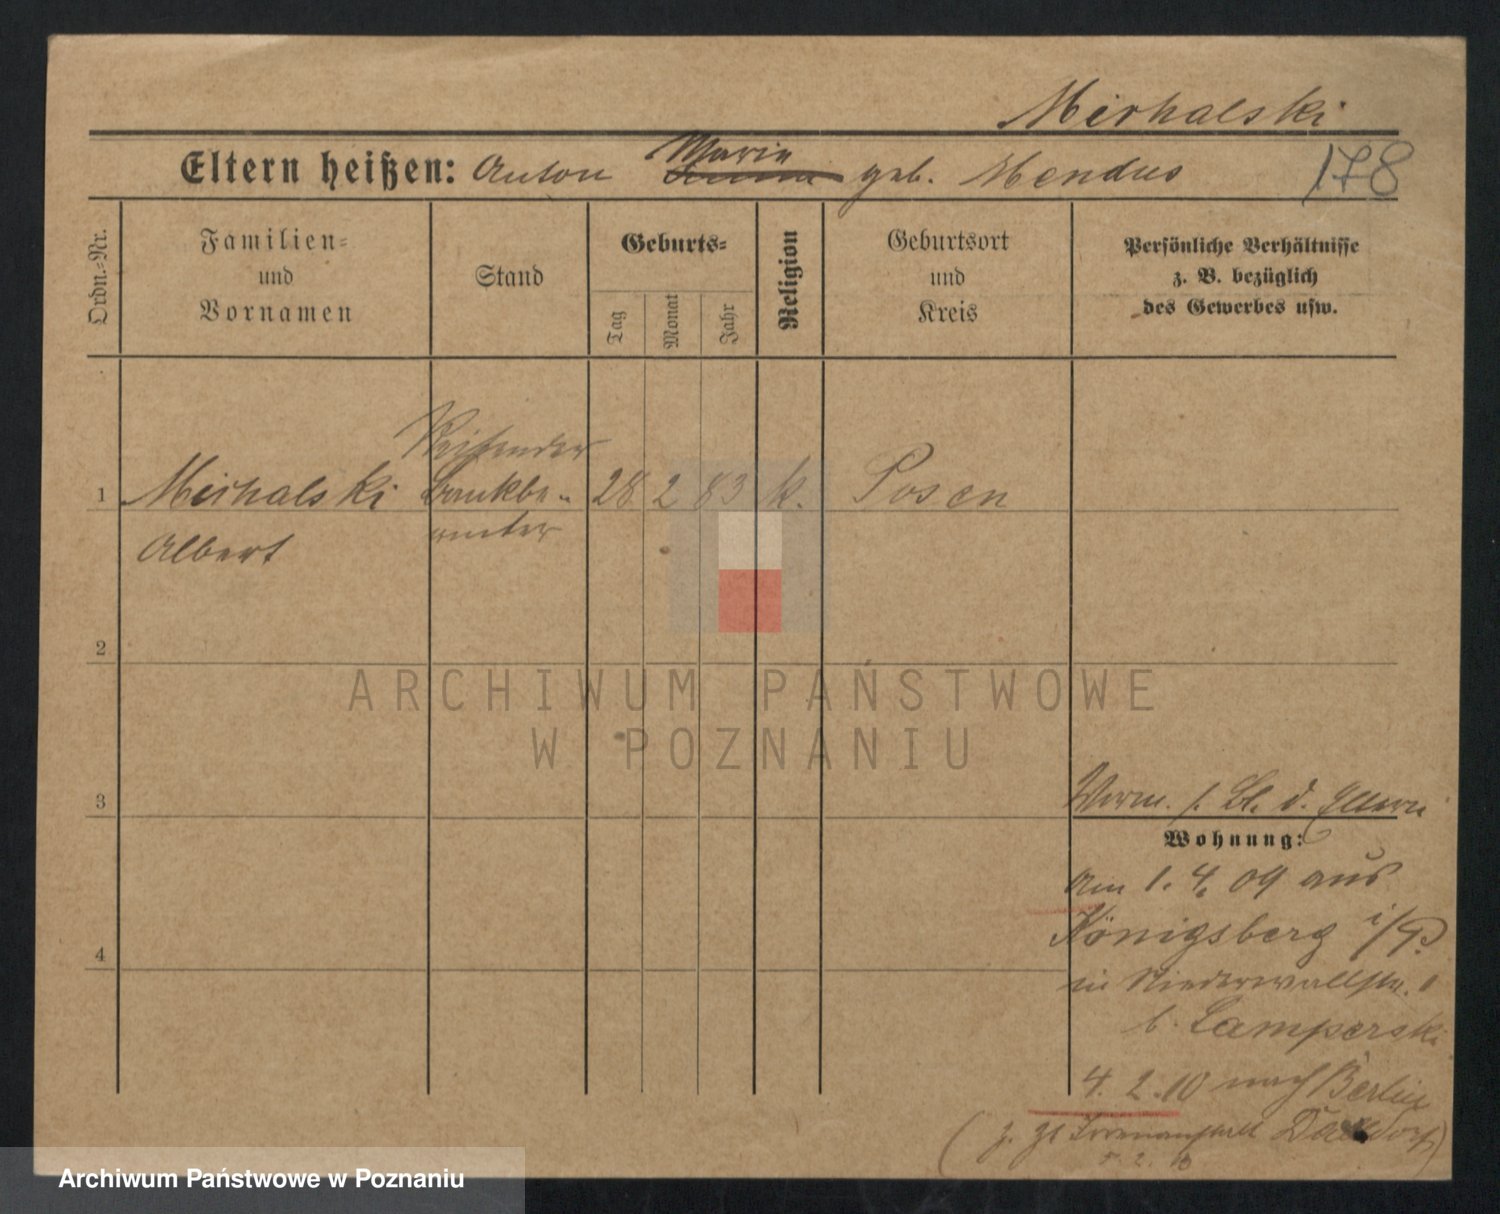 Michalski
Eltern heißen: Anton Maria geb. Mendus
178
Ordn.=Nr.
Familien=
und
Vornamen
Stand
Geburts=
Tag
Monat
Jahr
Religion
Geburtsort
und
Kreis
Persönliche Verhältnisse
z. B. bezüglich
des Gewerbes usw.
Reisender
1 Michalski Bankbe= 28 2 83 k. Posen
Albert amter
2
ARCHIWUM PAŃSTWOWE
W POZNANIU
3
Verm. s. Bl. d. Eltern
Wohnung:
am 1. 4. 09 aus
Königsberg i/P.
4
in Niederwallstr. 1
b. Lamperski
4. 2. 10 nach Berlin
(z. Zt Irrenanstalt Dalldorf)
5. 2. 10
Archiwum Państwowe w Poznaniu